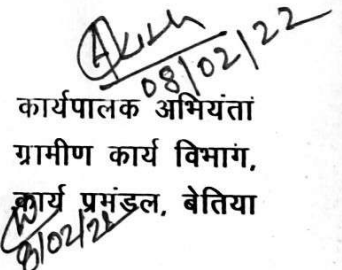 08/02/22
कार्यपालक अभियंता
ग्रामीण कार्य विभाग,
कार्य प्रमंडल, बेतिया
8/02/22